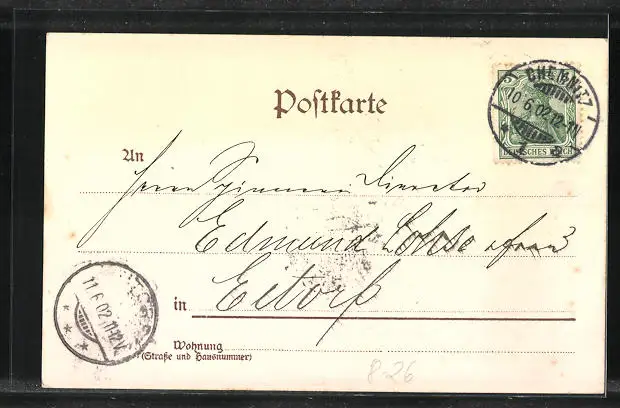 Postkarte
CHEMNITZ 1
10.6.02.12-1N
DEUTSCHES REICH
An
Herrn Spinnerei Director
Edmund Lohse
in Eitorf
11.6.02.11-12V
Wohnung
(Straße und Hausnummer)
8-26